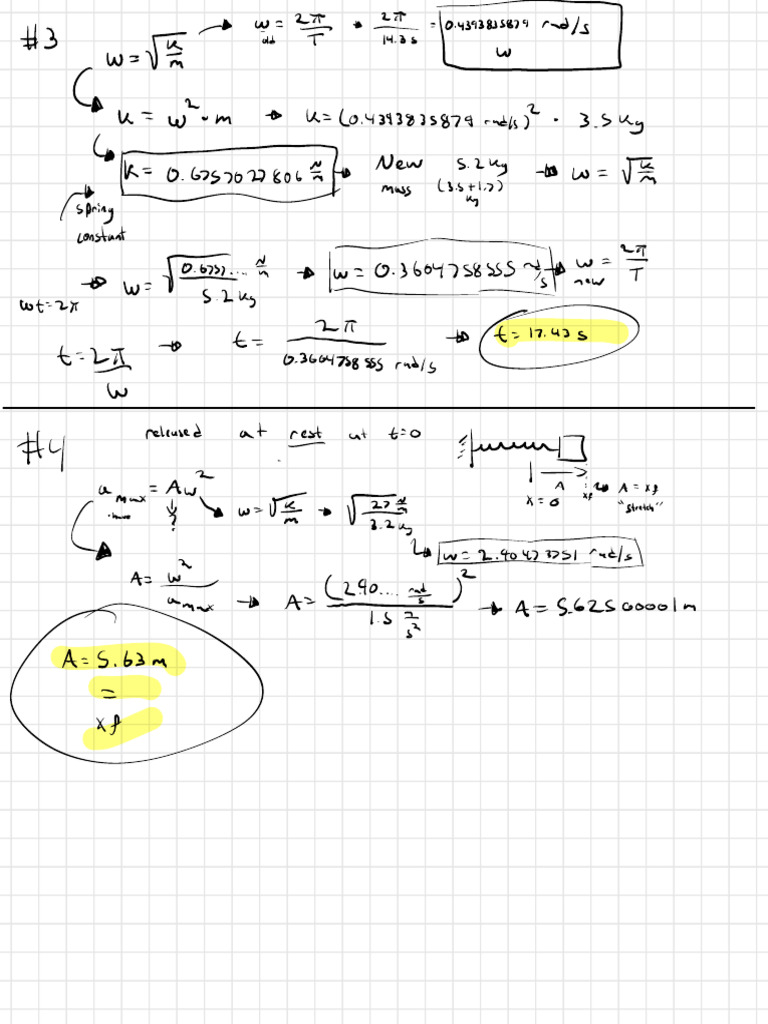 #3
ω = √(k/m) → ω_old = 2π/T → 2π/14.3 s = 0.4393835879 rad/s
ω
k = ω² · m → k = (0.4393835879 rad/s)² · 3.5 kg
k = 0.6757027806 N/m → New mass 5.2 kg (3.5+1.7) kg → ω = √(k/m)
spring constant
→ ω = √(0.6757... N/m / 5.2 kg) → ω = 0.3604758555 rad/s → ω_new = 2π/T
ωt = 2π
t = 2π/ω → t = 2π / 0.3604758555 rad/s → t = 17.43 s
#4 released at rest at t=0
a_max = Aω²
?
ω = √(k/m) → √(27 N/m / 3.2 kg)
x = 0 A xf A = xf "stretch"
ω = 2.90473751 rad/s
A = ω²/a_max → A = (2.90.... rad/s)² / 1.5 m/s² → A = 5.62500001 m
A = 5.63 m
=
xf